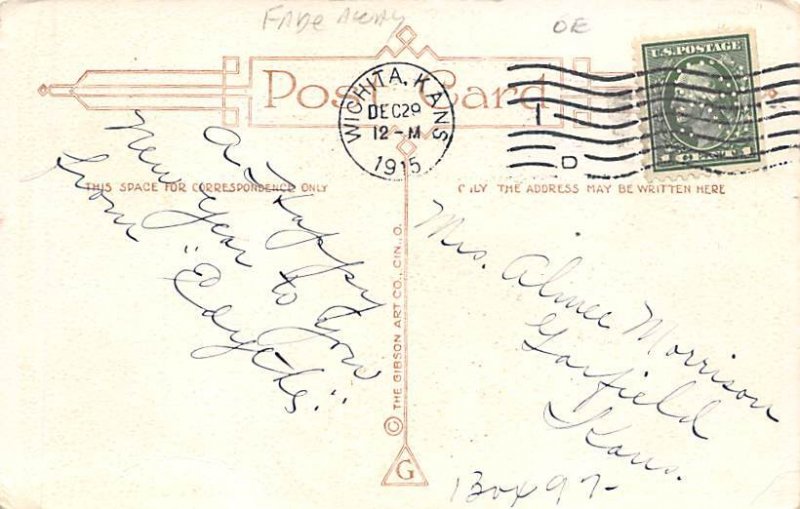 FADE AWAY
DE
Post Card
WICHITA, KANS
DEC 29
12-M
1915
1
D
U.S. POSTAGE
THIS SPACE FOR CORRESPONDENCE ONLY
ONLY THE ADDRESS MAY BE WRITTEN HERE
A Happy
New Year to you
from "Edyths."
Mrs. Almee Morrison
Garfield
Kans.
Box 97-
© THE GIBSON ART CO., CIN., O.
G